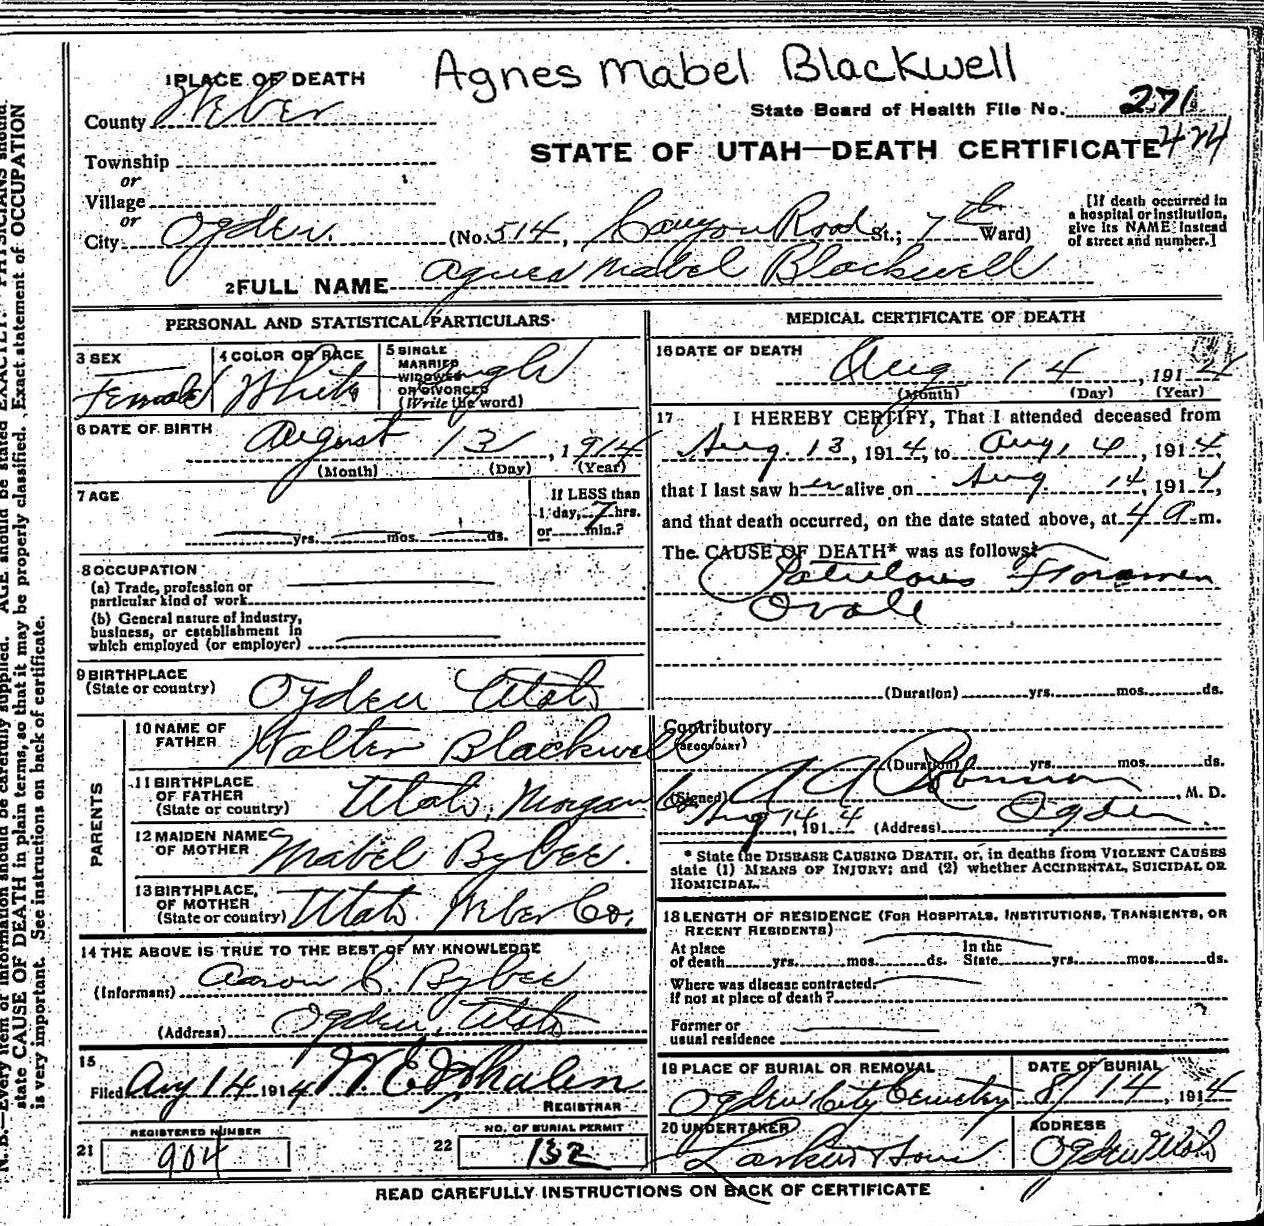 Agnes Mabel Blackwell
1 PLACE OF DEATH
County Weber
State Board of Health File No. 271
424
STATE OF UTAH—DEATH CERTIFICATE
Township
or
Village
or
City Ogden. (No. 514, Canyon Road St.; 7th Ward)
[If death occurred in
a hospital or institution,
give its NAME instead
of street and number.]
2 FULL NAME Agnes Mabel Blackwell
PERSONAL AND STATISTICAL PARTICULARS
3 SEX
Female
4 COLOR OR RACE
White
5 SINGLE
MARRIED
WIDOWED
OR DIVORCED
(Write the word)
Single
6 DATE OF BIRTH
August 13, 1914
(Month) (Day) (Year)
7 AGE
yrs. mos. ds.
If LESS than
1 day, 7 hrs.
or min.?
8 OCCUPATION
(a) Trade, profession or
particular kind of work
(b) General nature of industry,
business, or establishment in
which employed (or employer)
9 BIRTHPLACE
(State or country)
Ogden Utah
PARENTS
10 NAME OF
FATHER
Walter Blackwell
11 BIRTHPLACE
OF FATHER
(State or country)
Utah, Morgan Co
12 MAIDEN NAME
OF MOTHER
Mabel Bybee.
13 BIRTHPLACE,
OF MOTHER
(State or country)
Utah. Weber Co.
14 THE ABOVE IS TRUE TO THE BEST OF MY KNOWLEDGE
(Informant) Aaron C. Bybee
(Address) Ogden, Utah
15
Filed Aug 14 1914 W. E. Whalen
REGISTRAR
21 REGISTERED NUMBER
904
22 NO. OF BURIAL PERMIT
132
MEDICAL CERTIFICATE OF DEATH
16 DATE OF DEATH
Aug 14, 1914
(Month) (Day) (Year)
17 I HEREBY CERTIFY, That I attended deceased from
Aug. 13, 1914, to Aug, 14, 1914,
that I last saw her alive on Aug. 14, 1914,
and that death occurred, on the date stated above, at 4 a m.
The CAUSE OF DEATH* was as follows:
Patulous Foramen
Ovale
(Duration) yrs. mos. ds.
Contributory
(SECONDARY)
(Duration) yrs. mos. ds.
(Signed) A A Robinson, M. D.
Aug 14, 1914 (Address) Ogden
* State the DISEASE CAUSING DEATH, or, in deaths from VIOLENT CAUSES
state (1) MEANS OF INJURY; and (2) whether ACCIDENTAL, SUICIDAL OR
HOMICIDAL.
18 LENGTH OF RESIDENCE (FOR HOSPITALS, INSTITUTIONS, TRANSIENTS, OR
RECENT RESIDENTS)
At place In the
of death yrs. mos. ds. State yrs. mos. ds.
Where was disease contracted,
If not at place of death?
Former or
usual residence
19 PLACE OF BURIAL OR REMOVAL
Ogden City Cemetery
DATE OF BURIAL
8/14, 1914
20 UNDERTAKER
Larkin & Sons
ADDRESS
Ogden Utah
READ CAREFULLY INSTRUCTIONS ON BACK OF CERTIFICATE
N. B.—Every item of information should be carefully supplied. AGE should be stated EXACTLY. PHYSICIANS should
state CAUSE OF DEATH in plain terms, so that it may be properly classified. Exact statement of OCCUPATION
is very important. See instructions on back of certificate.